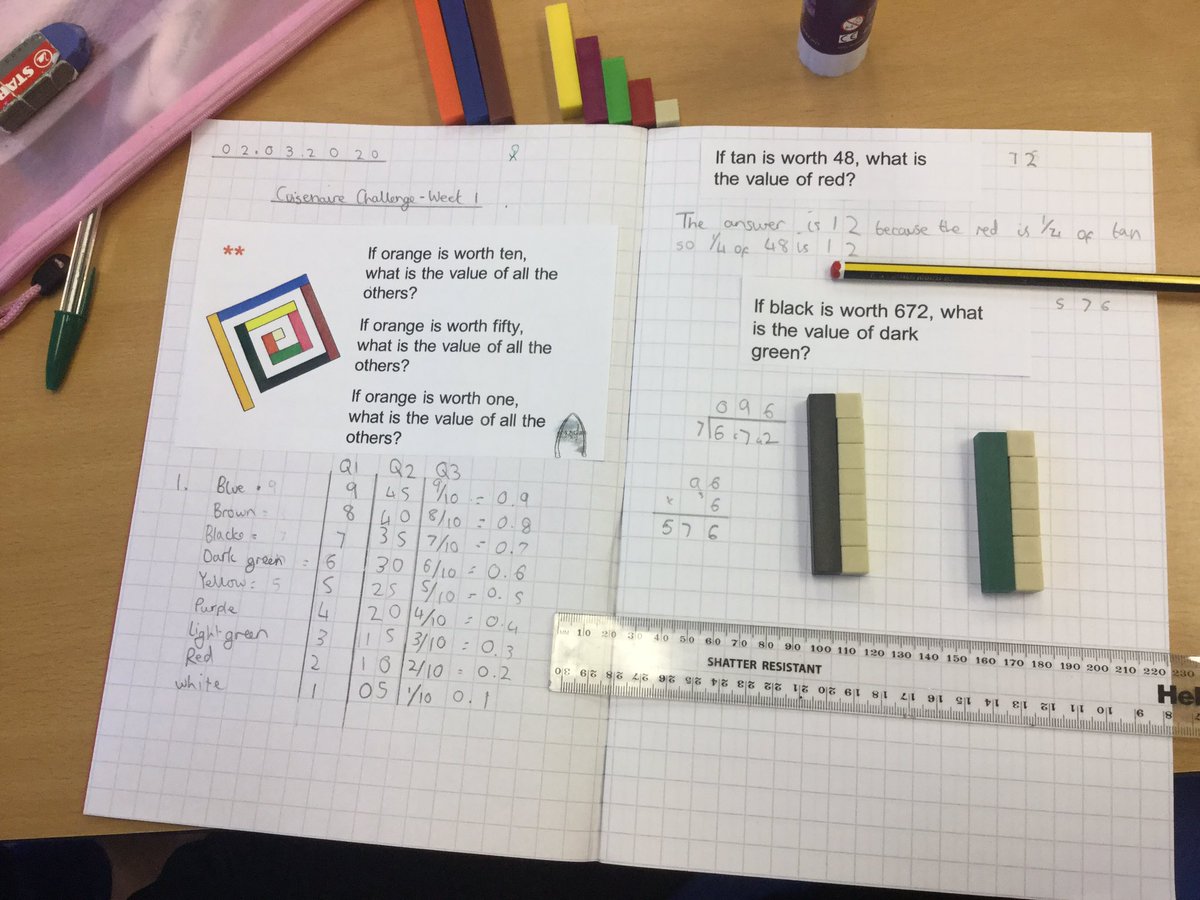 STAB
02.03.2020
Cuisenaire Challenge - Week 1
**
If orange is worth ten,
what is the value of all the
others?
If orange is worth fifty,
what is the value of all the
others?
If orange is worth one,
what is the value of all the
others?
Q1 Q2 Q3
1. Blue • 9 9 45 9/10 = 0.9
Brown = 8 40 8/10 = 0.8
Blacks = 7 7 35 7/10 = 0.7
Dark green = 6 30 6/10 = 0.6
Yellow = 5 5 25 5/10 = 0.5
Purple 4 20 4/10 = 0.4
Light green 3 15 3/10 = 0.3
Red 2 10 2/10 = 0.2
white 1 05 1/10 0.1
If tan is worth 48, what is
the value of red?
12
The answer is 12 because the red is 1/4 of tan
so 1/4 of 48 is 12
If black is worth 672, what
is the value of dark
green?
576
096
7 6 6 7 4 2
96
x 3 6
576
CE
MM 10 20 30 40 50 60 70 80 90 100 110 120 130 140 150 160 170 180 190 200 210 220 230
SHATTER RESISTANT
Hel
30 29 28 27 26 25 24 23 22 21 20 19 18 17 16 15 14 13 12 11 10 9 8